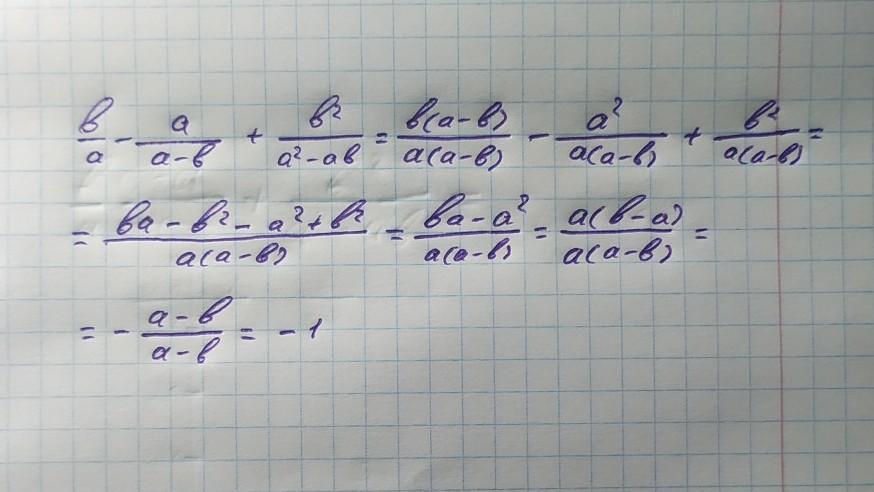 b/a - a/(a-b) + b²/(a²-ab) = b(a-b)/a(a-b) - a²/a(a-b) + b²/a(a-b) =
= (ba-b²-a²+b²)/a(a-b) = (ba-a²)/a(a-b) = a(b-a)/a(a-b) =
= - (a-b)/(a-b) = -1